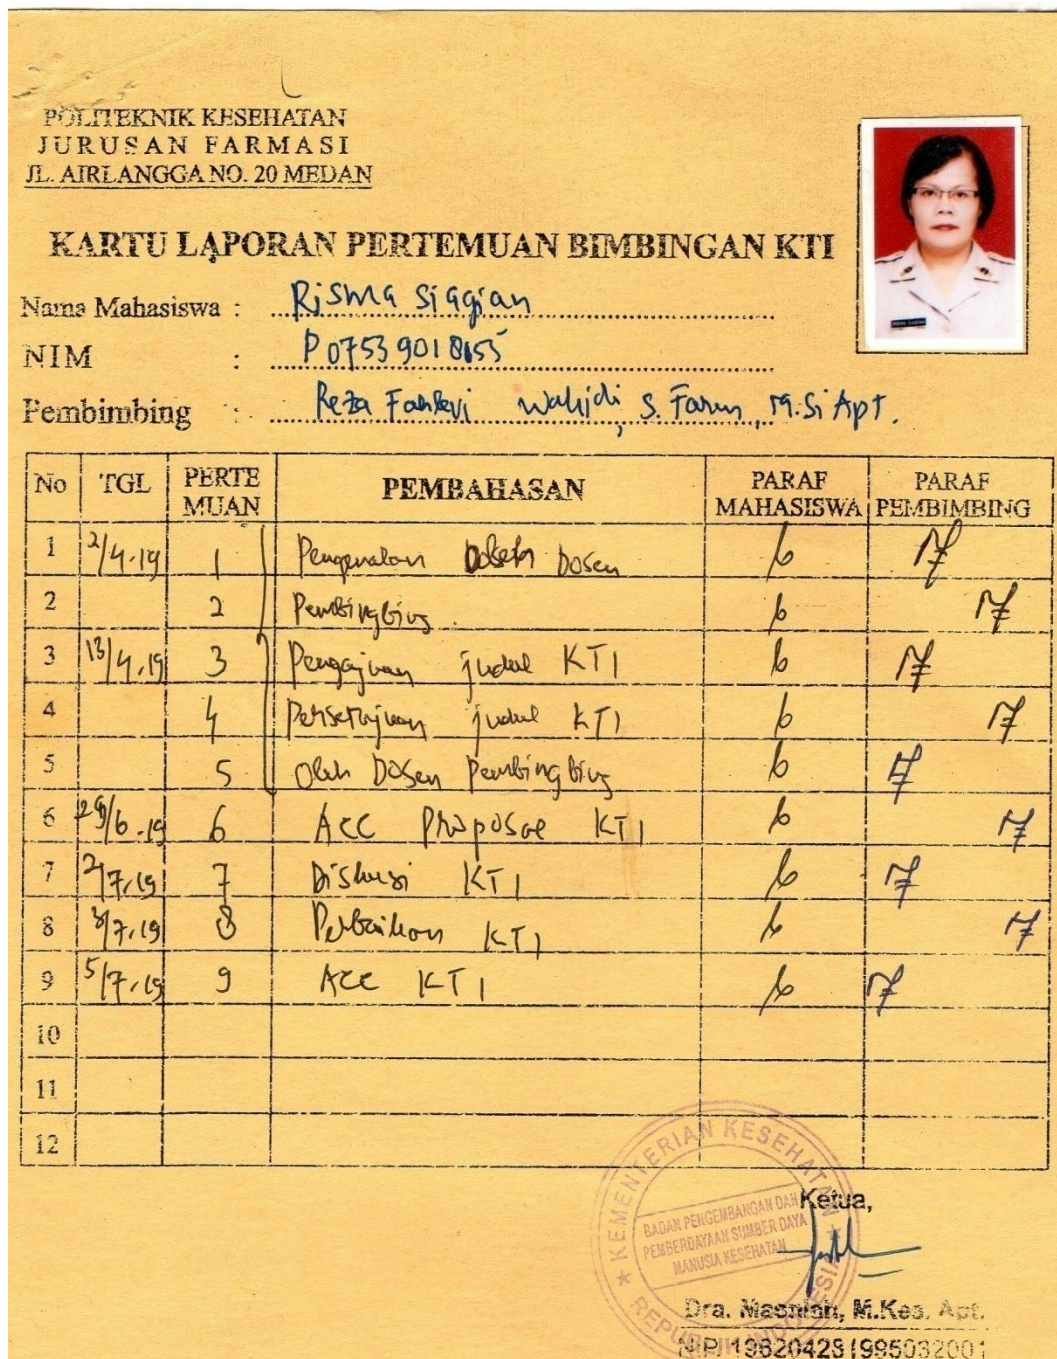 POLITEKNIK KESEHATAN
JURUSAN FARMASI
JL. AIRLANGGA NO. 20 MEDAN
KARTU LAPORAN PERTEMUAN BIMBINGAN KTI
Nama Mahasiswa : Risma Siagian
NIM : P07539018155
Pembimbing : Reza Fahlevi Wahidi, S. Farm, M.Si Apt.
No TGL PERTE MUAN PEMBAHASAN PARAF MAHASISWA PARAF PEMBIMBING
1 2/4-19 1 Pengenalan Dosen
2 2 Pembingbing.
3 13/4.19 3 Pengajuan judul KTI
4 4 Persetujuan judul KTI
5 5 Oleh Dosen Pembingbing
6 29/6.19 6 Acc Proposal KTI
7 2/7.19 7 Diskusi KTI
8 3/7.19 8 Perbaikan KTI
9 5/7.19 9 Acc KTI
10
11
12
KEMENTERIAN KESEHATAN
REPUBLIK INDONESIA
BADAN PENGEMBANGAN DAN
PEMBERDAYAAN SUMBER DAYA
MANUSIA KESEHATAN
Ketua,
Dra. Masniah, M.Kes, Apt.
NIP. 196204281995032001